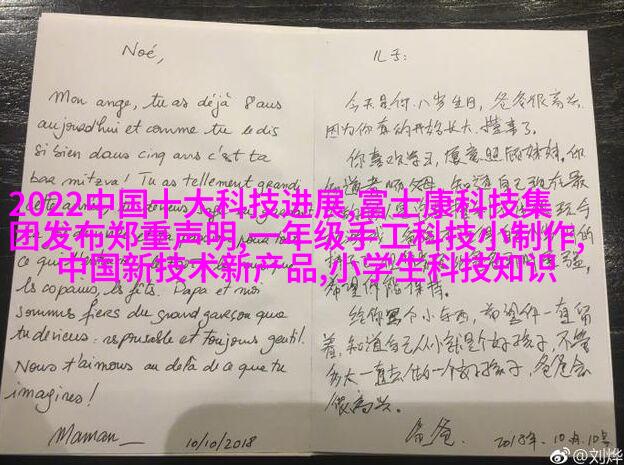 Noé,
Mon ange, tu as déjà 8 ans
aujourd'hui et comme tu le dis
si bien dans cinq ans c'est ta
bar mitzva! Tu as tellement grandi
les copains, les fêtes. Papa et moi
sommes fiers du grand garçon que
tu deviens: responsable et toujours gentil.
Nous t'aimons au delà de ce que tu
imagines!
Maman_
10/10/2018
儿子:
今天是你八岁生日,爸爸很高兴
因为你真的开始长大,懂事了。
你喜欢学习,愿意照顾妹妹。你
希望你能保持。
给你写个小东西,希望你一直留
着,知道自己从小就是个好孩子,不管
多大一直去做一个好孩子,爸爸会
很高兴。
爸爸.
2018年.10月.10号
2022中国十大科技进展,富士康科技集
团发布郑重声明,一年级手工科技小制作,
中国新技术新产品,小学生科技知识
@刘烨